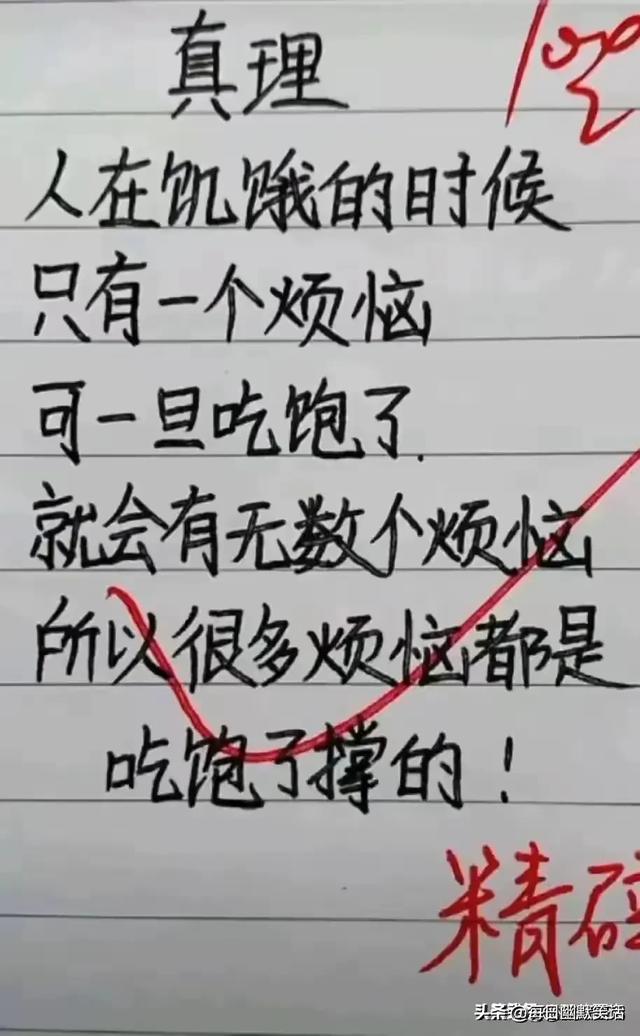 真理
人在饥饿的时候
只有一个烦恼
可一旦吃饱了.
就会有无数个烦恼
所以很多烦恼都是
吃饱了撑的!
精
@每日幽默笑话